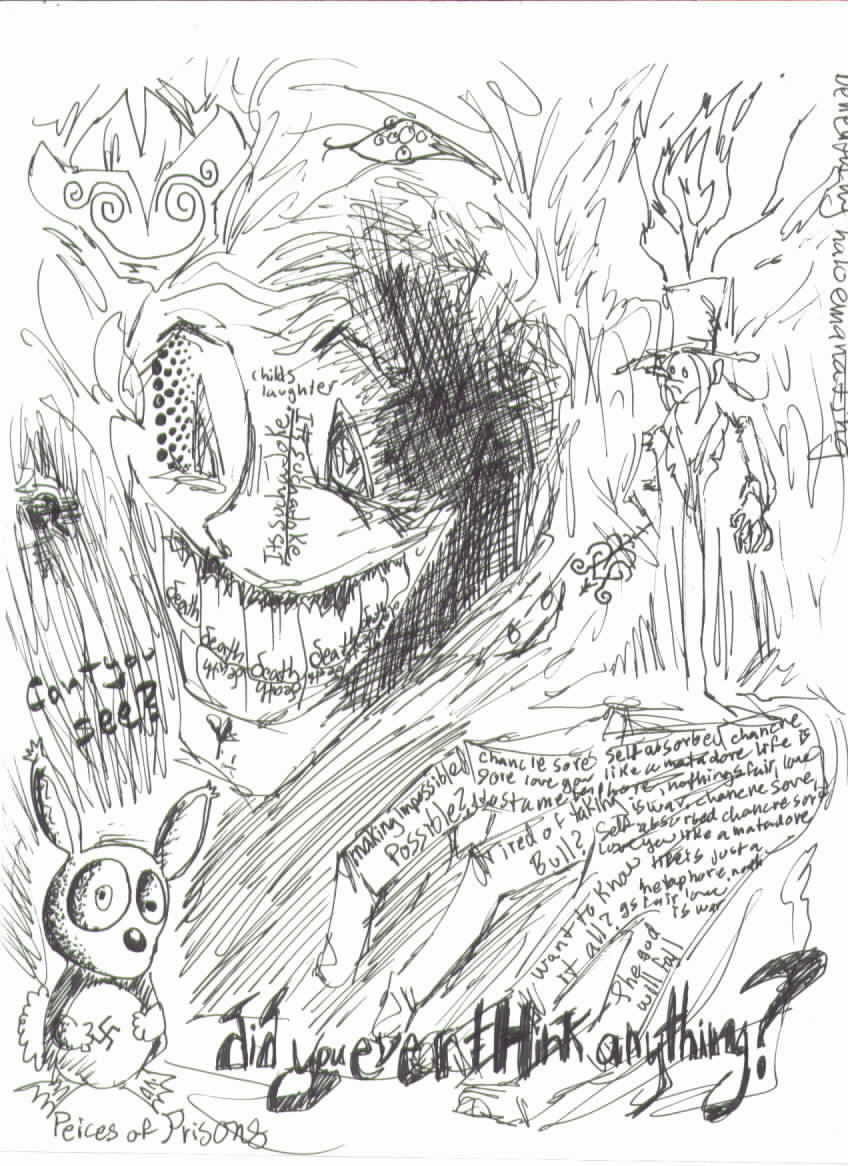 halo emanating
childs
laughter
It's such a joke
It's such a joke
death
death
death
death
death
death
death
cant you
see?
making impossible
Possible?
tired of taking
Bull?
want to know
it all?
chancre sore self absorbed chancre
sore love you like a matadore life is
just a metaphore, nothings fair, love
is war, chancre sore,
self absorbed chancre sore
love you like a matadore
life is just a
metaphore, nothin
gs fair love
is war
she god
will fall
did you even tHink anything?
Peices of Prisons